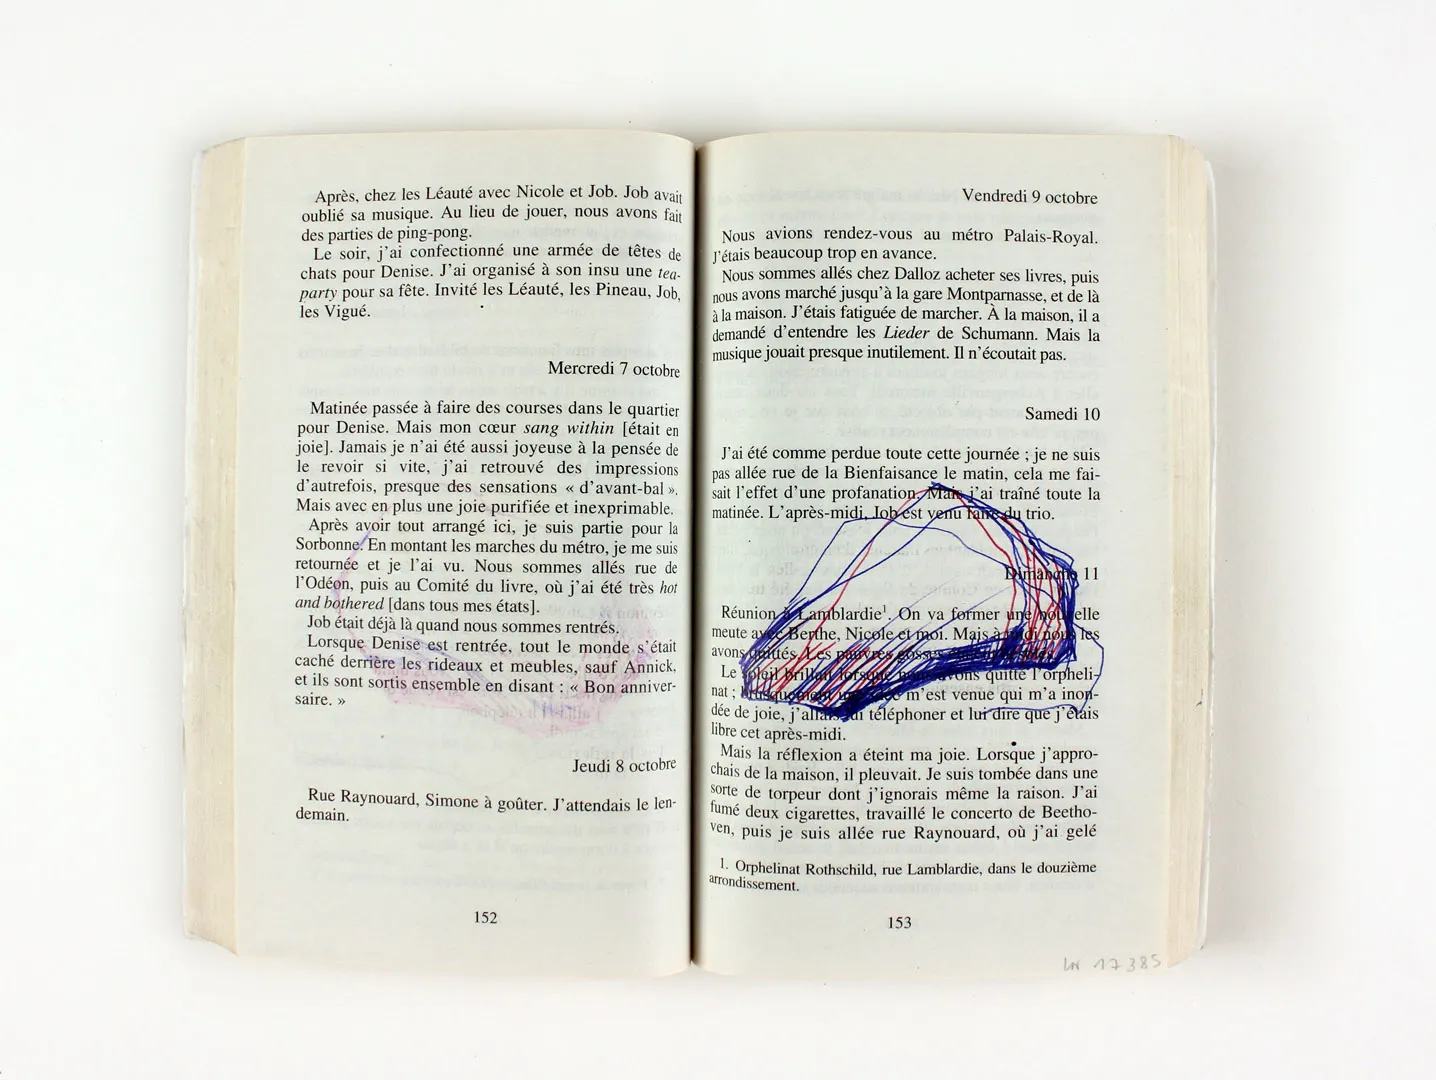 Après, chez les Léauté avec Nicole et Job. Job avait
oublié sa musique. Au lieu de jouer, nous avons fait
des parties de ping-pong.
Le soir, j'ai confectionné une armée de têtes de
chats pour Denise. J'ai organisé à son insu une tea-
party pour sa fête. Invité les Léauté, les Pineau, Job,
les Vigué.
Mercredi 7 octobre
Matinée passée à faire des courses dans le quartier
pour Denise. Mais mon cœur sang within [était en
joie]. Jamais je n'ai été aussi joyeuse à la pensée de
le revoir si vite, j'ai retrouvé des impressions
d'autrefois, presque des sensations « d'avant-bal ».
Mais avec en plus une joie purifiée et inexprimable.
Après avoir tout arrangé ici, je suis partie pour la
Sorbonne. En montant les marches du métro, je me suis
retournée et je l'ai vu. Nous sommes allés rue de
l'Odéon, puis au Comité du livre, où j'ai été très hot
and bothered [dans tous mes états].
Job était déjà là quand nous sommes rentrés.
Lorsque Denise est rentrée, tout le monde s'était
caché derrière les rideaux et meubles, sauf Annick,
et ils sont sortis ensemble en disant : « Bon anniver-
saire. »
Jeudi 8 octobre
Rue Raynouard, Simone à goûter. J'attendais le len-
demain.
152
Vendredi 9 octobre
Nous avions rendez-vous au métro Palais-Royal.
J'étais beaucoup trop en avance.
Nous sommes allés chez Dalloz acheter ses livres, puis
nous avons marché jusqu'à la gare Montparnasse, et de là
à la maison. J'étais fatiguée de marcher. À la maison, il a
demandé d'entendre les Lieder de Schumann. Mais la
musique jouait presque inutilement. Il n'écoutait pas.
Samedi 10
J'ai été comme perdue toute cette journée ; je ne suis
pas allée rue de la Bienfaisance le matin, cela me fai-
sait l'effet d'une profanation. Mais j'ai traîné toute la
matinée. L'après-midi, Job est venu faire du trio.
Dimanche 11
Réunion à Lamblardie1. On va former une nouvelle
meute avec Berthe, Nicole et moi. Mais à midi nous les
avons quittés. Les pauvres gosses
Le soleil brillait lorsque nous avons quitté l'orpheli-
nat ; brusquement une m'est venue qui m'a inon-
dée de joie, j'allais lui téléphoner et lui dire que j'étais
libre cet après-midi.
Mais la réflexion a éteint ma joie. Lorsque j'appro-
chais de la maison, il pleuvait. Je suis tombée dans une
sorte de torpeur dont j'ignorais même la raison. J'ai
fumé deux cigarettes, travaillé le concerto de Beetho-
ven, puis je suis allée rue Raynouard, où j'ai gelé
1. Orphelinat Rothschild, rue Lamblardie, dans le douzième
arrondissement.
153
LN 17385